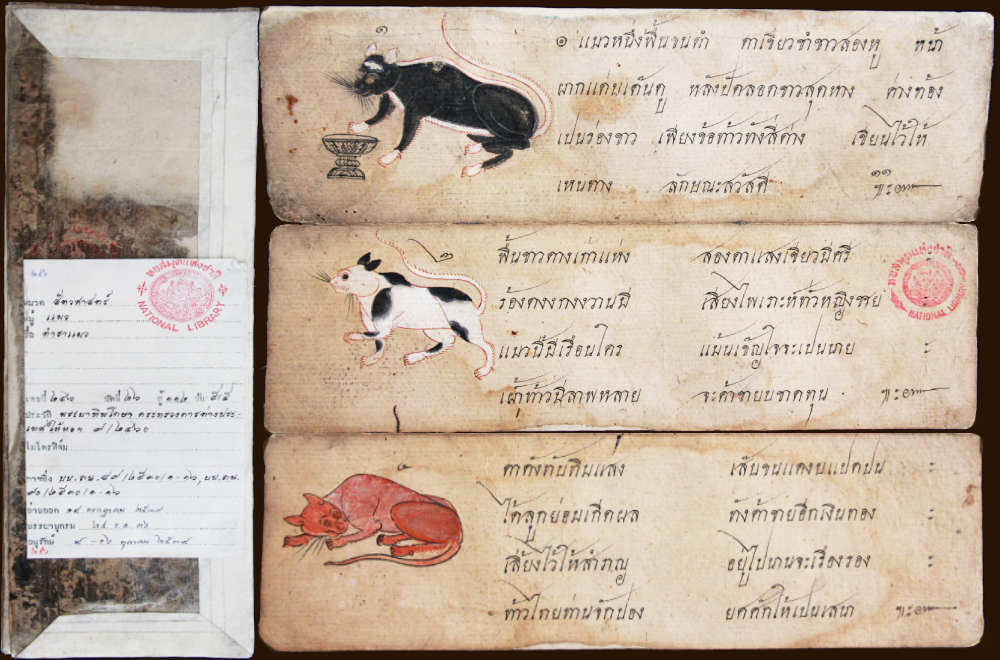 หอสมุดแห่งชาติ
NATIONAL LIBRARY
หมวด สัตวศาสตร์
หมู่ แมว
ชื่อ ตำราแมว
เลขที่ ๒๕๐ มัดที่ ๒๖ ตู้ ๑๑๒ ชั้น
ประวัติ กระทรวงการต่างประ-
เทศให้หอฯ ๙/๒๔๖๐
ไมโครฟิล์ม
อ่านถอด ๑๙ กรกฎาคม ๒๕๓๗
บรรณานุกรม
อนุรักษ์ ตุลาคม ๒๕๓๙
๑
๑ แมวหนึ่งพื้นขนดำ ตาเขียวชำขาวสองหู หน้า
ผากแด่นเด้นดู หลังปัดลอกขาวสุดหาง ค่างท้อง
เปนร่องขาว เพียงข้อท้าวทังสี่ค่าง เขียนไว้ให้
เหนทาง ลักษณะสวัสดี ฯะ๛
๒
พื้นขาวดางเก้าแห่ง สองตาแสงเขียวมีศรี
ร้องดงงกงงวานมี เสียงไพเราะห์ทั้วหญิงชาย ะ
แมวนี้มีเรือนใคร แม้นเขัญใจจะเปนนาย ะ
เผุ้ท้าวมีลาพหลาย จะค้าขายบขาดทุน ฯะ๛
หอสมุดแห่งชาติ
NATIONAL LIBRARY
ตาดังทับทิมแสง เส้นขนแดงบแปดปน ะ
ได้ลูกย่อมเกิดผล ทังค้าขายอีกเงินทอง ะ
เลี้ยงไว้ให้สำราญ อยู่ไปนานจะเรืองรอง ะ
ท้าวไทยท่านจักปอง ยศศักให้เปนเสนา ฯะ๛